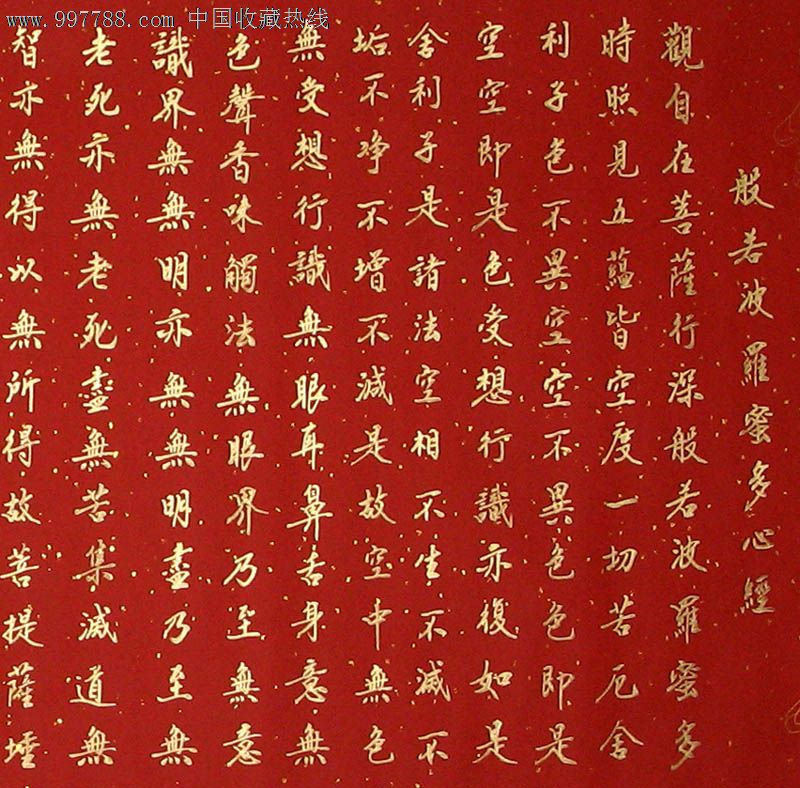 www.997788.com 中国收藏热线
般若波羅蜜多心經
觀自在菩薩行深般若波羅蜜多
時照見五蘊皆空度一切苦厄舍
利子色不異空空不異色色即是
空空即是色受想行識亦復如是
舍利子是諸法空相不生不滅不
垢不淨不增不減是故空中無色
無受想行識無眼耳鼻舌身意無
色聲香味觸法無眼界乃至無意
識界無無明亦無無明盡乃至無
老死亦無老死盡無苦集滅道無
智亦無得以無所得故菩提薩埵